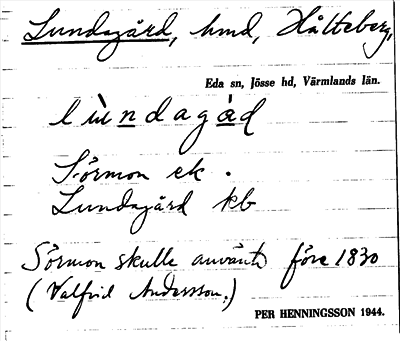 Lundagård, hmd, Hålteberg,
Eda sn, Jösse hd, Värmlands län.
lùndagàd
Sörmon ek.
Lundagård kb
Sörmon skulle använts före 1830
(Valfrid Andersson.)
PER HENNINGSSON 1944.